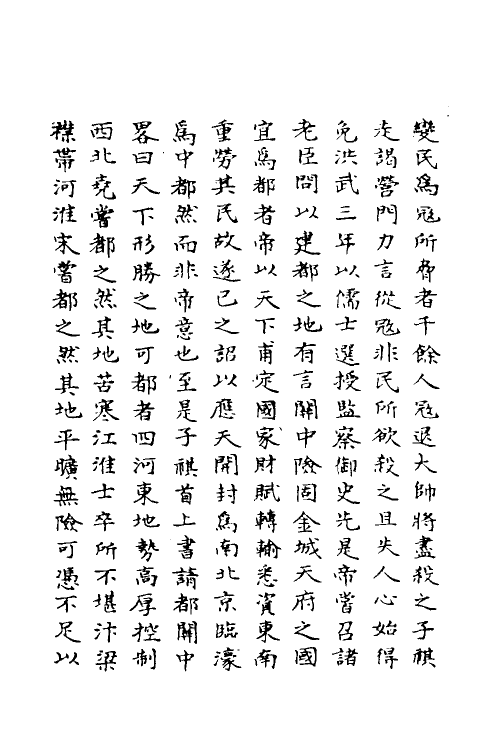 變民爲冦所脅者千餘人冦退大帥將盡殺之子祺
走謁營門力言從冦非民所欲殺之且失人心始得
免洪武三年以儒士選授監察御史先是帝嘗召諸
老臣問以建都之地有言關中險固金城天府之國
宜爲都者帝以天下甫定國家財賦轉輸悉資東南
重勞其民故遂已之詔以應天開封爲南北京臨濠
爲中都然而非帝意也至是子祺首上書請都關中
畧曰天下形勝之地可都者四河東地勢高厚控制
西北堯嘗都之然其地苦寒江淮士卒所不堪汴梁
襟帶河淮宋嘗都之然其地平曠無險可憑不足以